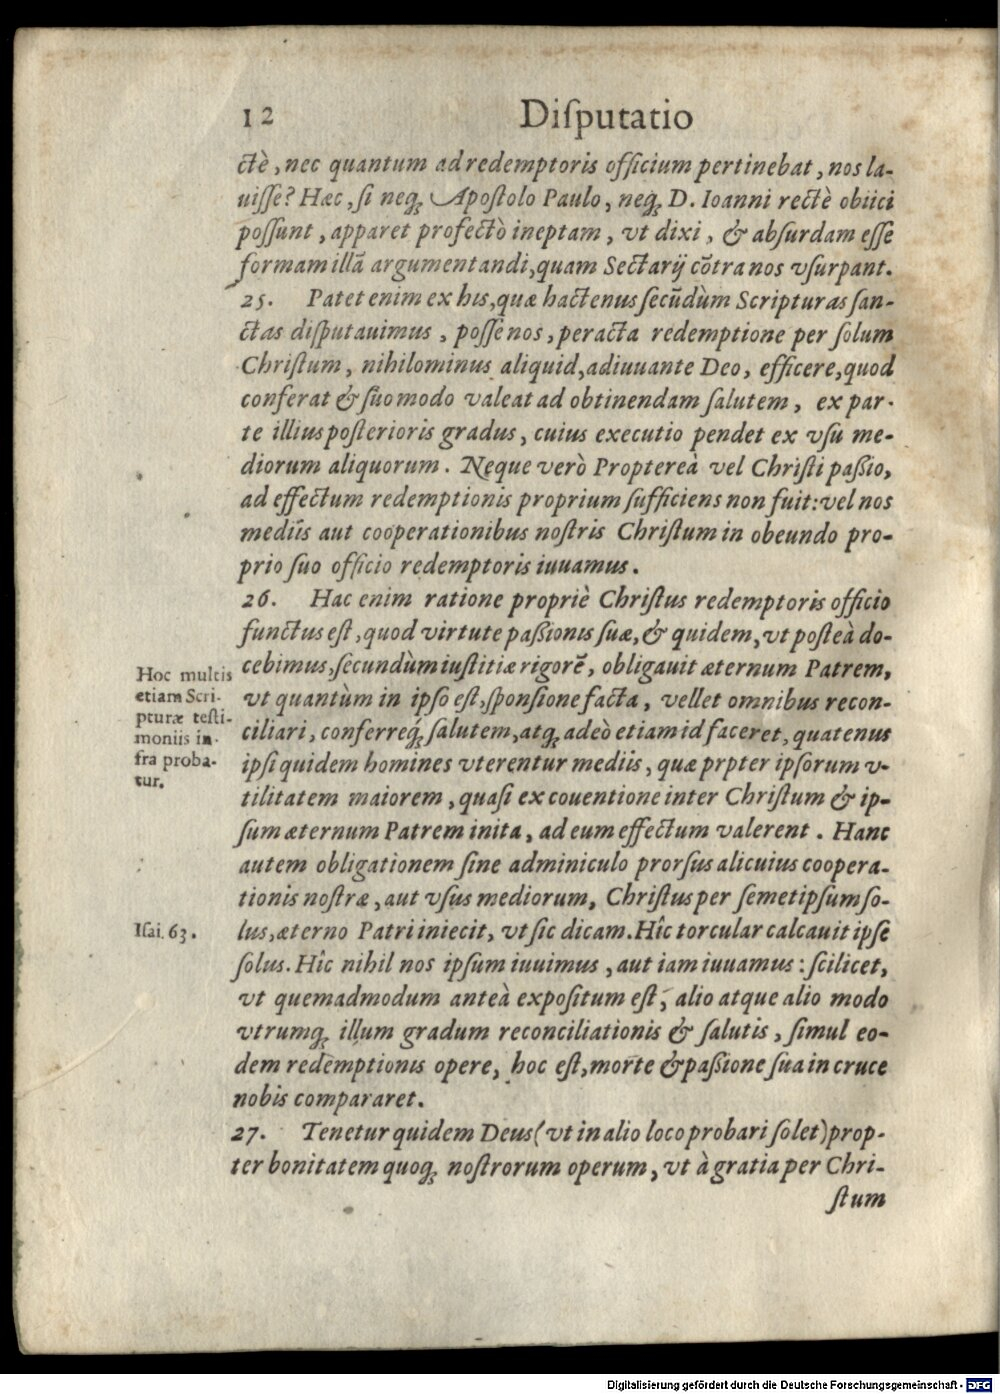 12 Diſputatio
ctè, nec quantum ad redemptoris officium pertinebat, nos la-
uiſſe? Hæc, ſi neq; Apoſtolo Paulo, neq; D. Ioanni rectè obiici
poſſunt, apparet profectò ineptam, vt dixi, & abſurdam eſſe
formam illã argumentandi, quam Sectarij cõtra nos vſurpant.
25. Patet enim ex his, quæ hactenus ſecũdùm Scripturas ſan-
ctas diſputauimus, poſſe nos, peracta redemptione per ſolum
Chriſtum, nihilominus aliquid, adiuuante Deo, efficere, quod
conferat & ſuo modo valeat ad obtinendam ſalutem, ex par-
te illius poſterioris gradus, cuius executio pendet ex vſu me-
diorum aliquorum. Neque verò Propterea vel Chriſti paßio,
ad effectum redemptionis proprium ſufficiens non fuit: vel nos
mediis aut cooperationibus noſtris Chriſtum in obeundo pro-
prio ſuo officio redemptoris iuuamus.
26. Hac enim ratione propriè Chriſtus redemptoris officio
functus eſt, quod virtute paßionis ſuæ, & quidem, vt poſteà do-
cebimus, ſecundùm iuſtitiæ rigorẽ, obligauit æternum Patrem,
vt quantùm in ipſo eſt, ſponſione facta, vellet omnibus recon-
ciliari, conferreq́; ſalutem, atq; adeò etiam id faceret, quatenus
ipſi quidem homines vterentur mediis, quæ prpter ipſorum v-
tilitatem maiorem, quaſi ex couentione inter Chriſtum & ip-
ſum æternum Patrem inita, ad eum effectum valerent. Hanc
autem obligationem ſine adminiculo prorſus alicuius coopera-
tionis noſtræ, aut vſus mediorum, Chriſtus per ſemetipſum ſo-
lus, æterno Patri iniecit, vt ſic dicam. Hîc torcular calcauit ipſe
ſolus. Hîc nihil nos ipſum iuuimus, aut iam iuuamus: ſcilicet,
vt quemadmodum anteà expoſitum eſt, alio atque alio modo
vtrumq; illum gradum reconciliationis & ſalutis, ſimul eo-
dem redemptionis opere, hoc eſt, morte & paßione ſua in cruce
nobis compararet.
27. Tenetur quidem Deus (vt in alio loco probari ſolet) prop-
ter bonitatem quoq; noſtrorum operum, vt à gratia per Chri-
ſtum
Hoc multis
etiam Scri-
pturæ teſti-
moniis in-
fra proba-
tur.
Iſai. 63.
Digitalisierung gefördert durch die Deutsche Forschungsgemeinschaft - DFG